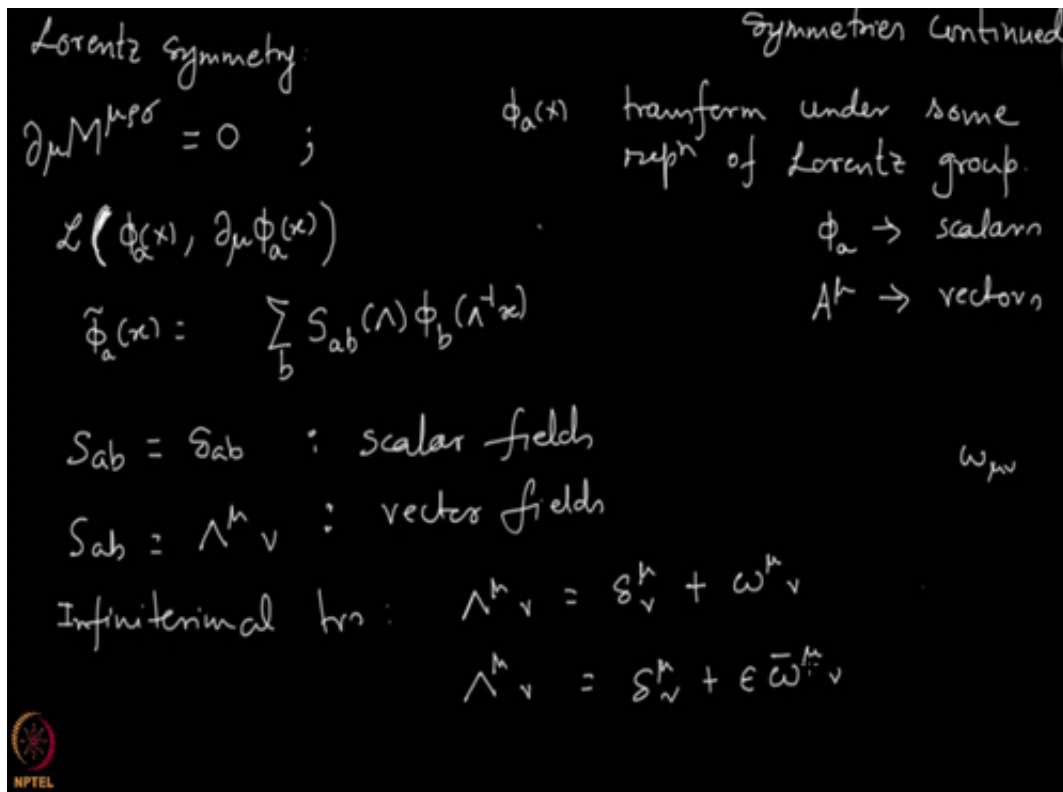 Lorentz Symmetry:
Symmetries Continued
∂μM^{μρσ} = 0 ;
ϕ_a(x) transform under some
repⁿ of Lorentz group.
L(ϕ_a(x), ∂μϕ_a(x))
ϕ_a → scalars
A^μ → vectors
ϕ̃_a(x) = Σ_b S_ab(Λ) ϕ_b(Λ⁻¹x)
S_ab = δ_ab : scalar fields
ω_μν
S_ab = Λ^μ_ν : vector fields
Infinitesimal trn: Λ^μ_ν = δ^μ_ν + ω^μ_ν
Λ^μ_ν = δ^μ_ν + ϵ ω̄^μ_ν
NPTEL